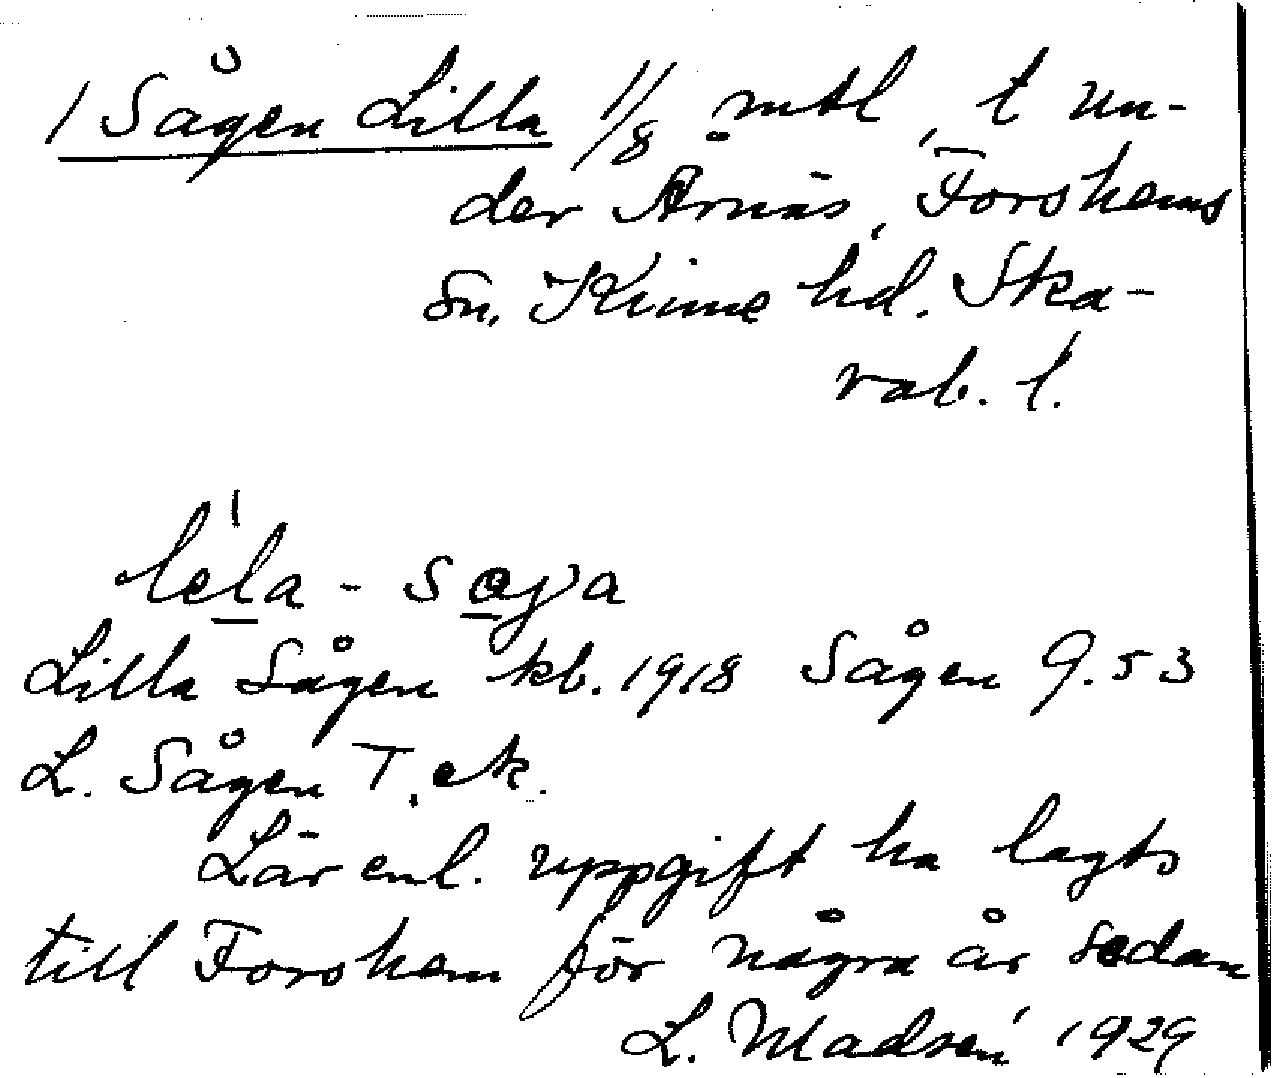 1 Sågen Lilla 1/8 mtl, t un-
der Årnäs, Forshems
sn, Kinne hd. Ska-
rab. l.
Lilla Sågen kb. 1918 Sågen 9.53
L. Sågen T, ek.
Lär enl. uppgift ha lagts
till Forshem för några år sedan
L. Madsén 1929